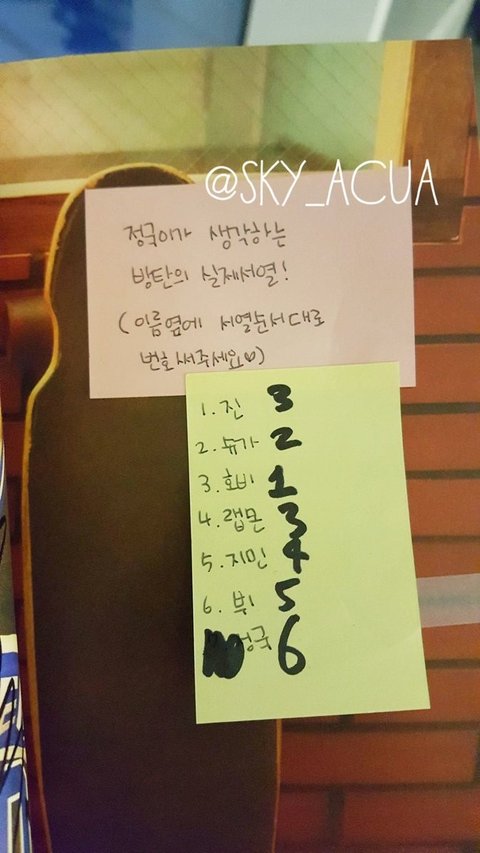 @SKY_ACUA
정국이가 생각하는
방탄의 실제서열!
(이름옆에 서열순서대로
번호써주세요♡)
1. 진 3
2. 슈가 2
3. 호비 1
4. 랩몬 3
5. 지민 4
6. 뷔 5
정국 6